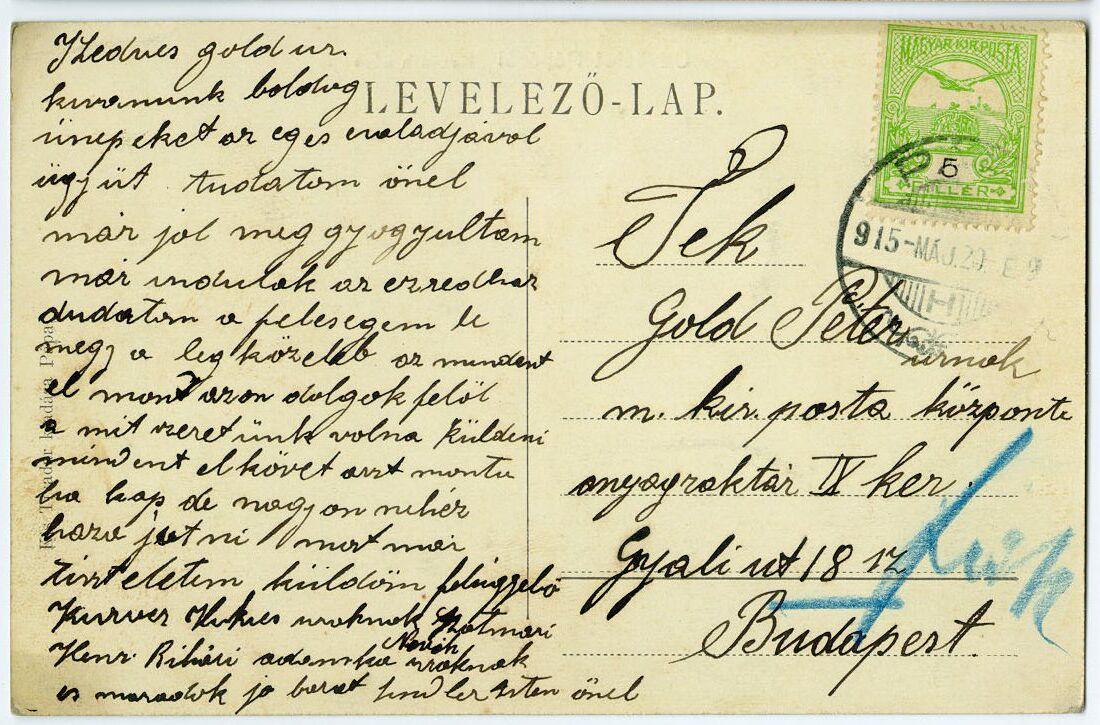 Kedves gold ur.
kivanunk boldog
ünepeket az eges csaladjával
úgyüt tudatom önel
már jol meggyogyultam
már indulok az ezredhez
dudatom a felesegem le
megy a leg közeleb az mindent
el mond azon dolgok felöl
a mit zeretünk volna küldeni
mindent elkövet aszt montu
ha kap de nagyon nehéz
haza jutni most már
tisteletem küldöm felügyelö
uroknak Szatmari
Henr. Bihari adamka Novak uroknak
es maradok jo barat önel
LEVELEZŐ-LAP.
MAGYAR KIR. POSTA
5
FILLÉR
915-MÁJ.20
Tek
Gold Péter
urnok
m. kir. posta központi
anyagraktár IX ker.
Gyali ut 18 sz
Budapest.